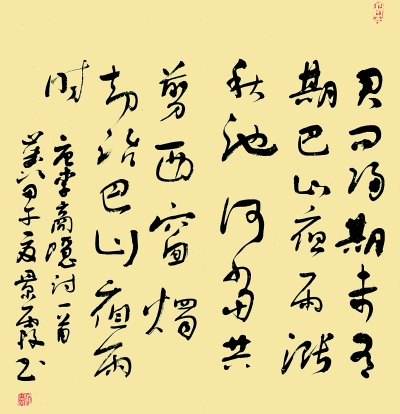 君问归期未有
期巴山夜雨涨
秋池何当共
剪西窗燭
却话巴山夜雨
时
唐李商隐诗一首
甲午夏景霞书